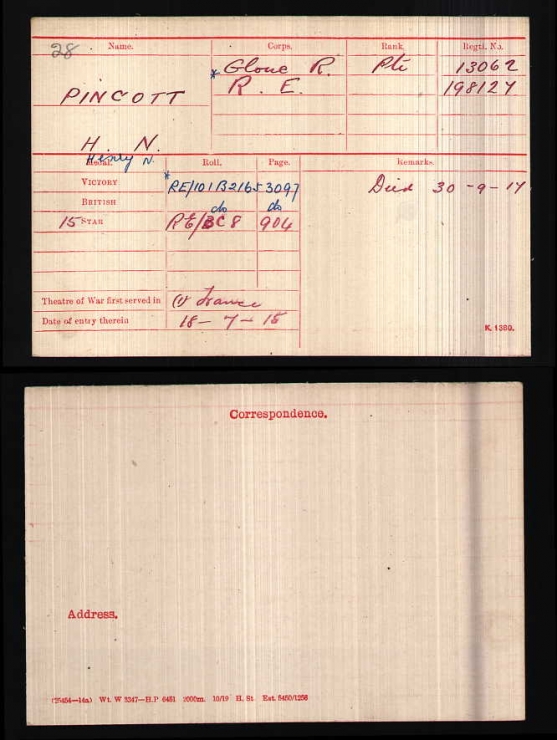 28
Name. Corps. Rank. Regtl. No.
* Glouc R. Pte 13062
PINCOTT R. E. 198127
H. N.
Henry N.
Medal. Roll. Page. Remarks.
VICTORY * RE/101B2165 3097 Died 30-9-17
BRITISH do do
15 STAR RE/8C8 904
Theatre of War first served in (1) France
Date of entry therein 18-7-15
K. 1380.
Correspondence.
Address.
(25454—14a) Wt. W 3247—H.P 6481 2000m. 10/19 H. St. Est. 5450/1256